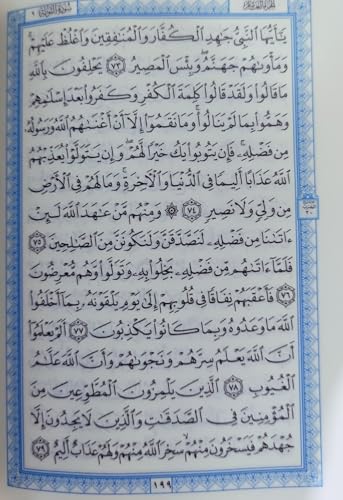 سورة التوبة ٩ الجزء العاشر
يَٰٓأَيُّهَا ٱلنَّبِيُّ جَٰهِدِ ٱلۡكُفَّارَ وَٱلۡمُنَٰفِقِينَ وَٱغۡلُظۡ عَلَيۡهِمۡۚ
وَمَأۡوَىٰهُمۡ جَهَنَّمُۖ وَبِئۡسَ ٱلۡمَصِيرُ ٧٣ يَحۡلِفُونَ بِٱللَّهِ
مَا قَالُواْ وَلَقَدۡ قَالُواْ كَلِمَةَ ٱلۡكُفۡرِ وَكَفَرُواْ بَعۡدَ إِسۡلَٰمِهِمۡ
وَهَمُّواْ بِمَا لَمۡ يَنَالُواْۚ وَمَا نَقَمُوٓاْ إِلَّآ أَنۡ أَغۡنَىٰهُمُ ٱللَّهُ وَرَسُولُهُۥ
مِن فَضۡلِهِۦۚ فَإِن يَتُوبُواْ يَكُ خَيۡرٗا لَّهُمۡۖ وَإِن يَتَوَلَّوۡاْ يُعَذِّبۡهُمُ
ٱللَّهُ عَذَابًا أَلِيمٗا فِي ٱلدُّنۡيَا وَٱلۡأٓخِرَةِۚ وَمَا لَهُمۡ فِي ٱلۡأَرۡضِ
مِن وَلِيّٖ وَلَا نَصِيرٖ ٧٤ ۞ وَمِنۡهُم مَّنۡ عَٰهَدَ ٱللَّهَ لَئِنۡ
ءَاتَىٰنَا مِن فَضۡلِهِۦ لَنَصَّدَّقَنَّ وَلَنَكُونَنَّ مِنَ ٱلصَّٰلِحِينَ ٧٥
فَلَمَّآ ءَاتَىٰهُم مِّن فَضۡلِهِۦ بَخِلُواْ بِهِۦ وَتَوَلَّواْ وَّهُم مُّعۡرِضُونَ
٧٦ فَأَعۡقَبَهُمۡ نِفَاقٗا فِي قُلُوبِهِمۡ إِلَىٰ يَوۡمِ يَلۡقَوۡنَهُۥ بِمَآ أَخۡلَفُواْ
ٱللَّهَ مَا وَعَدُوهُ وَبِمَا كَانُواْ يَكۡذِبُونَ ٧٧ أَلَمۡ يَعۡلَمُوٓاْ
أَنَّ ٱللَّهَ يَعۡلَمُ سِرَّهُمۡ وَنَجۡوَىٰهُمۡ وَأَنَّ ٱللَّهَ عَلَّٰمُ
ٱلۡغُيُوبِ ٧٨ ٱلَّذِينَ يَلۡمِزُونَ ٱلۡمُطَّوِّعِينَ مِنَ
ٱلۡمُؤۡمِنِينَ فِي ٱلصَّدَقَٰتِ وَٱلَّذِينَ لَا يَجِدُونَ إِلَّا
جُهۡدَهُمۡ فَيَسۡخَرُونَ مِنۡهُمۡ سَخِرَ ٱللَّهُ مِنۡهُمۡ وَلَهُمۡ عَذَابٌ أَلِيمٌ ٧٩
١٩٩